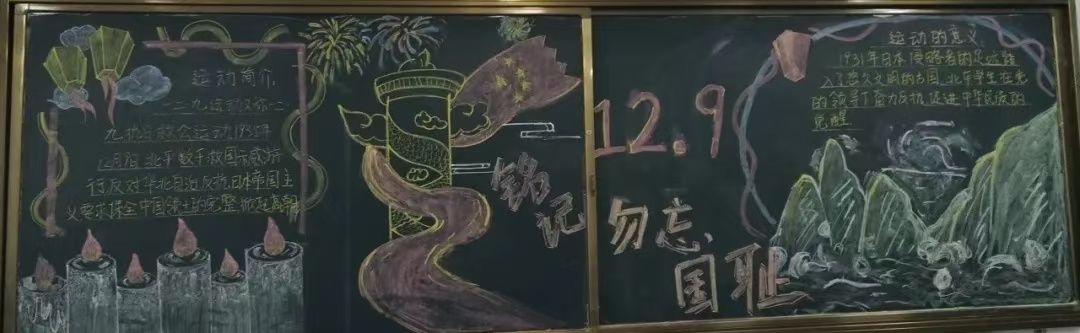 运动简介
一二九运动又称一二
九抗日救亡运动1935年
12月9日北平数千救国示威游
行反对华北自治反抗日本帝国主
义要求保全中国领土的完整掀起高朝
铭记
12.9
勿忘
国耻
运动的意义
1931年日本侵略者的足迹踏
入了悠久文明的古国,北平学生在党
的领导下奋力反抗促进中华民族的
觉醒